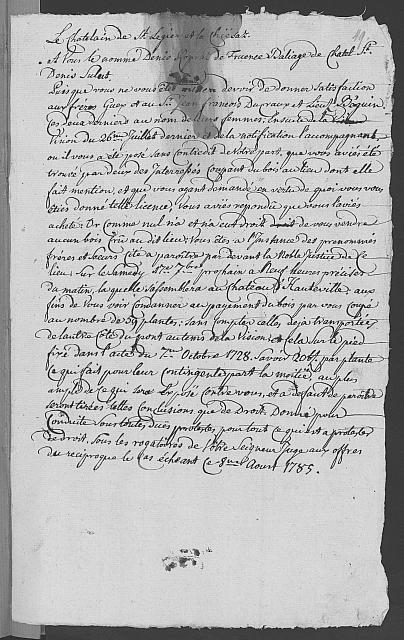 Le Chatelain de St. Legier et la Chiesaz.
A Vous le nommé Denis Fruence Baliage de Chatel St.
Denis Salut.
Puisque ne vous être mis en devoir de donner Satisfaction
aux frères Guex et au Sr. François Ducraux et
Ces deux dernier au nom de leurs femmes, Ensuite de la
Vision du 26me Juillet dernier de la notification l'accompagnant
ou il vous a été posé Sans Contredit de Votre part, que vous avés été
trouvé par deux des Interressés Coupant du bois au lieu dont elle
fait mention, et que vous ayant demandé en vertu de quoi vous vous
etiés donné telle licence, vous aviés repondu que vous l'aviés
acheté: Or Comme nul n'a et n'a eut droit de vous vendre
aucun bois Crû au dit lieu, vous êtes a l'instance des prenommés
frères et Sœurs Cité a paroitre par devant la Noble Justice de Ce
lieu, Sur le Samedy 17e 7bre prochain a Neuf heures précises
du matin, la quelle S'assemblera au Château d'Hauteville aux
fins de vous voir Condamner au payement du bois par vous Coupé
au nombre de 59 plantes, Sans Compter celles deja transportées
de l'autre Coté du pront au tems de la Vision, et Cela Sur le pied
fixé dans l'acte du 7me Octobre 1728. Savoir 20 f. par plante
Ce qui fait pour leur Contingente part la moitié, au plus
ample de Ce qui Sera Exposé Contre vous, et a defaut de paroitre
Seront tirées telles Conclusions que de droit. Donné pour
Conduite Sous toutes dües protestes pour tout Ce qui est a protester
de droit, Sous les rogatoires de Votre Seigneur Juge aux offres
du reciproque le Cas échéant Ce 8me Aoust 1785.